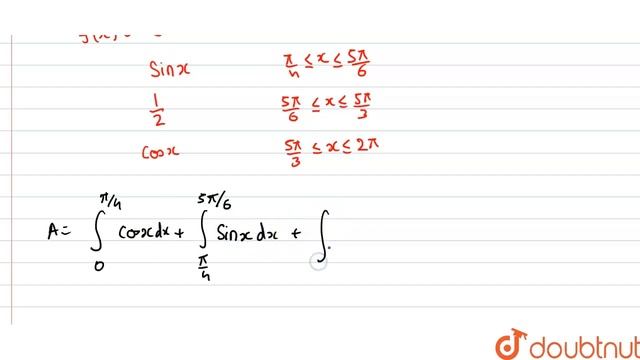 Sinx π/4 ≤ x ≤ 5π/6
1/2 5π/6 ≤ x ≤ 5π/3
cosx 5π/3 ≤ x ≤ 2π
A = ∫₀^(π/4) cosxdx + ∫_(π/4)^(5π/6) Sinxdx + ∫
doubtnut